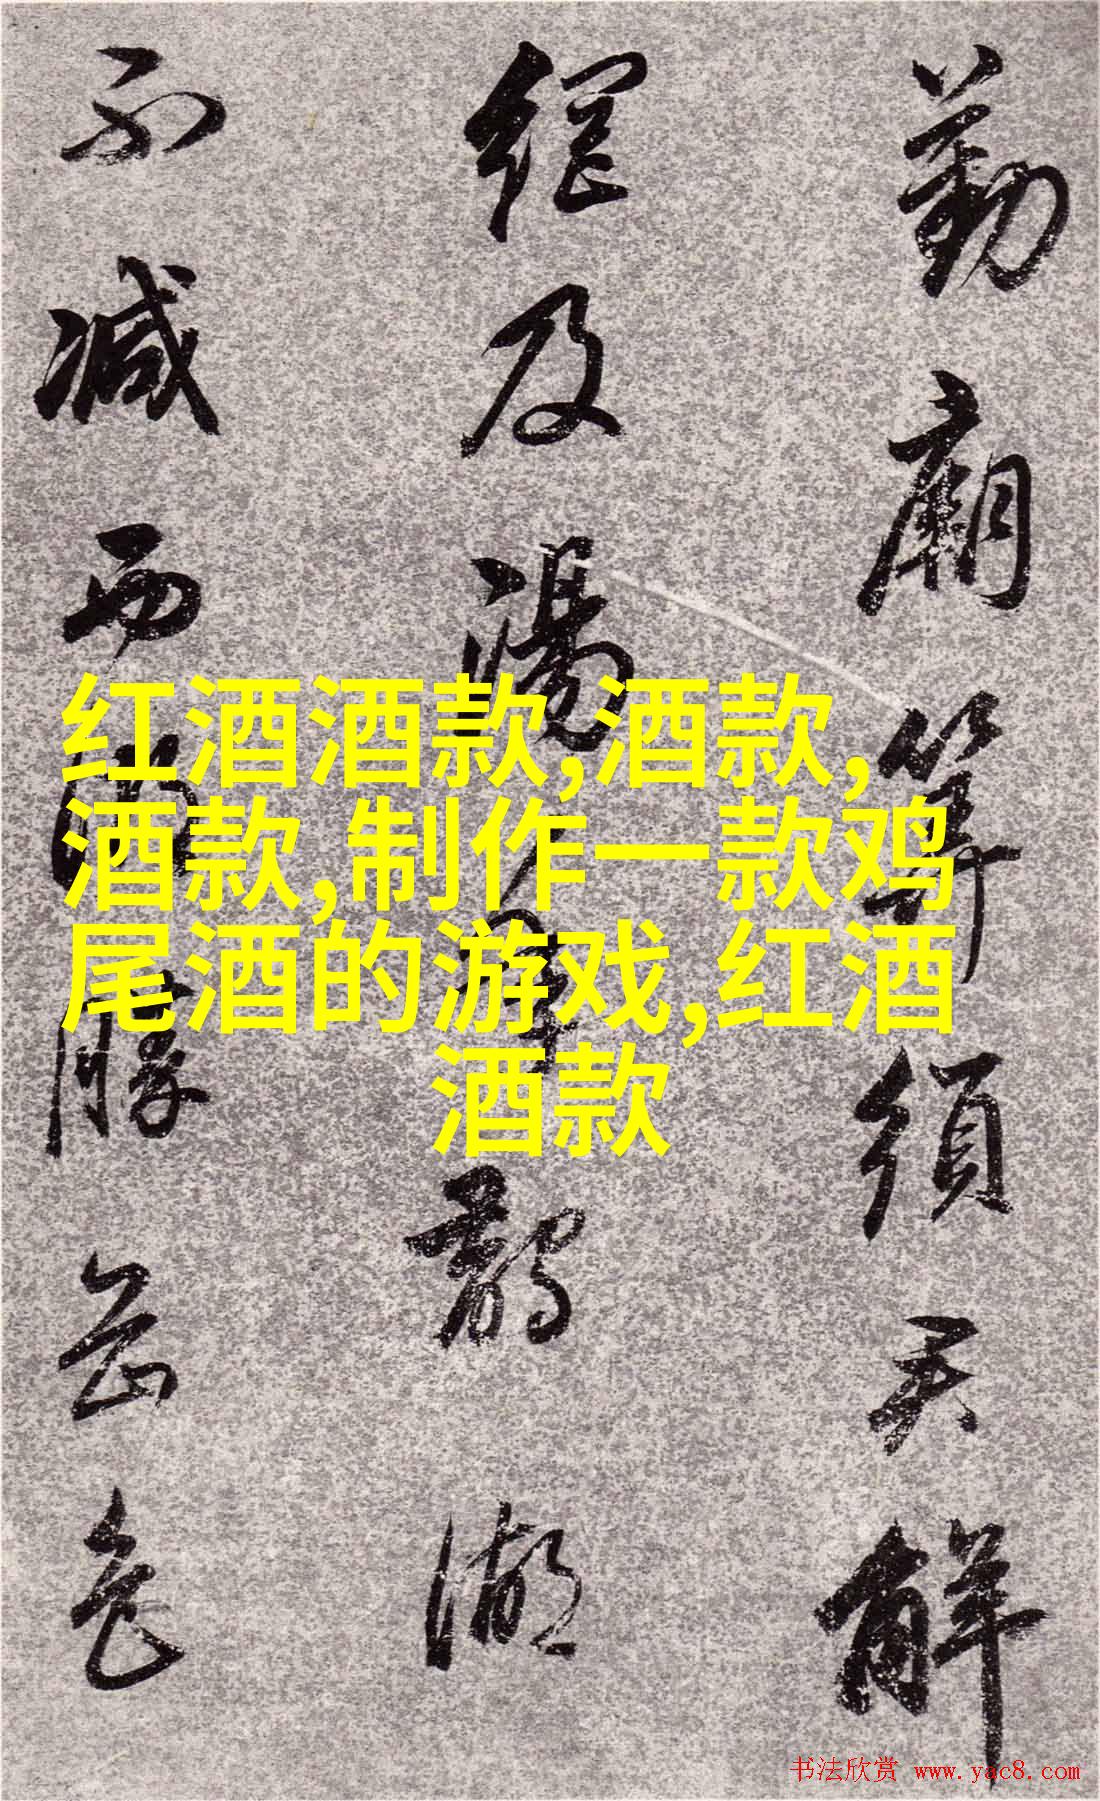 勤廟算須君解
經及湯星鵲湖
不減西湖勝岳色
红酒酒款,酒款,
酒款,制作一款鸡
尾酒的游戏,红酒
酒款
书法欣赏 www.yac8.com